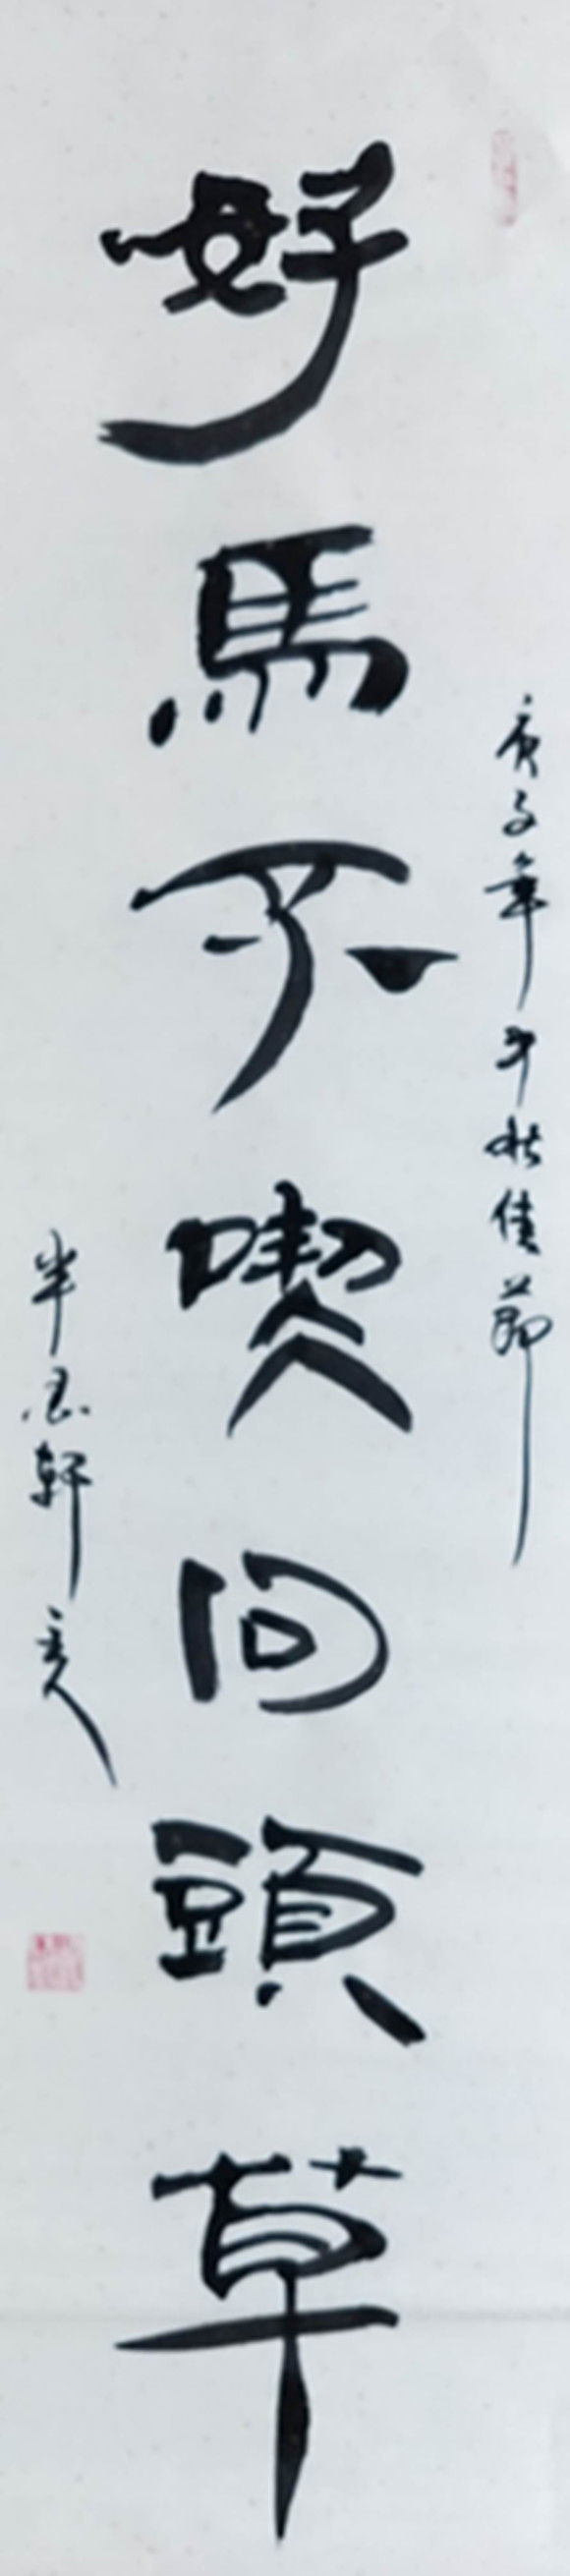 庚子年中秋佳節
好馬不喫回頭草
半墨軒主人